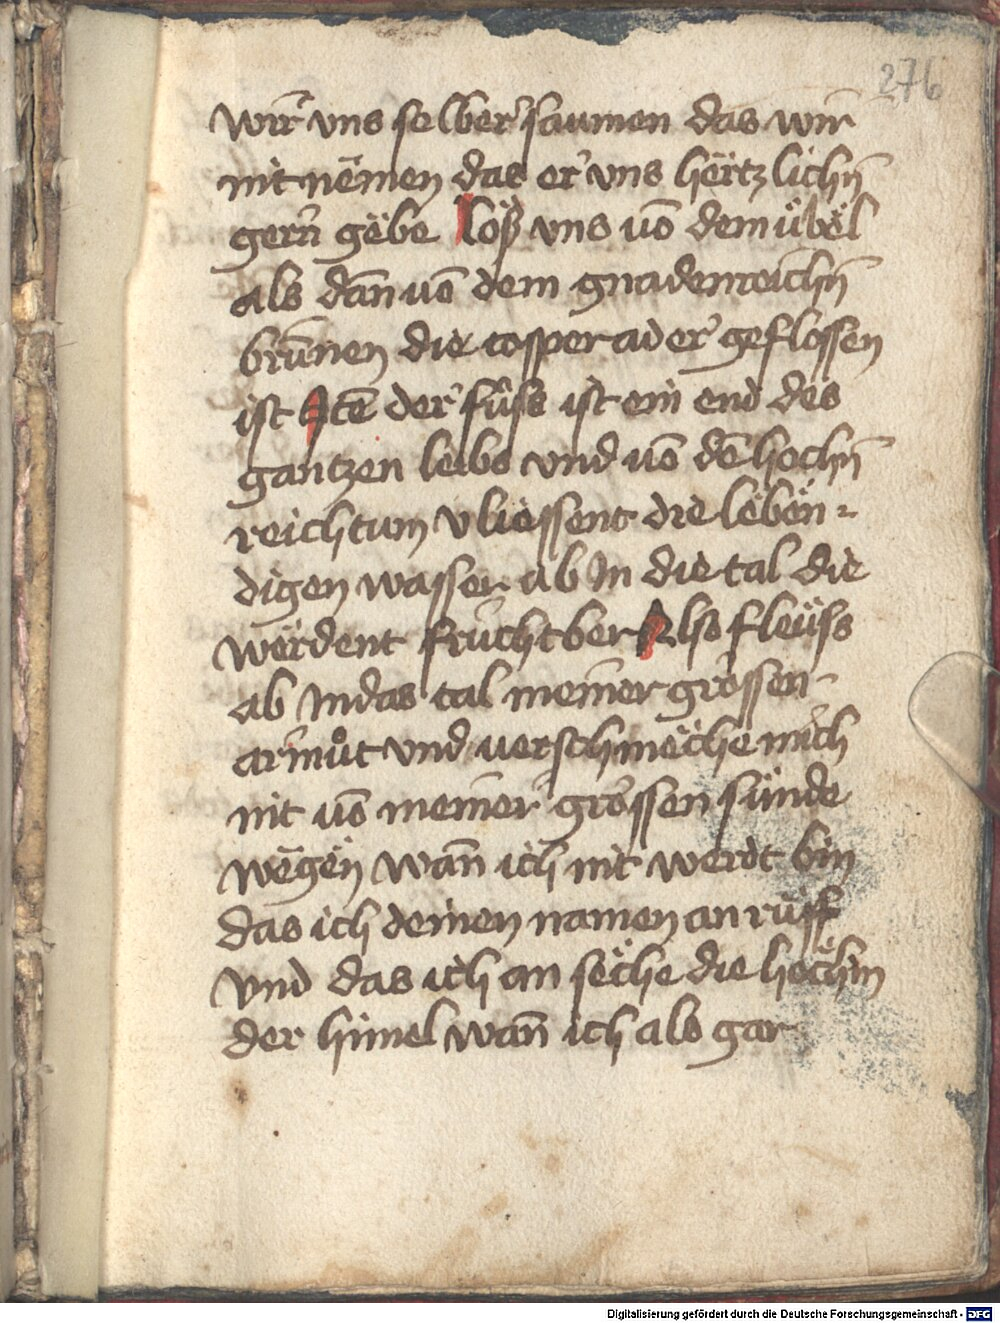 276
wir vns selber saumen das wir
nit nëmen das er vns hërtzlichn̄
gern̄ gëbe Löß vns uō dem übël
als dān uō dem gnadenreichn̄
brūnen die rosper ader geflossen
ist Itē der fůss ist ein end des
gantzen leibs vnd uō dē hochn̄
reichtum vliessent die lëbën-
digen wasser ab In die tal die
wërdent fruchtber Also fleüss
ab In das tal meiner grossen
armůt vnd uerschmëche mich
nit uō meiner grossen sünde
wëgen wān ich nit werdt bin
das ich deinen namen an rüff
vnd das ich an sëche die höchin
der himel wān ich als gar
Digitalisierung gefördert durch die Deutsche Forschungsgemeinschaft - DFG